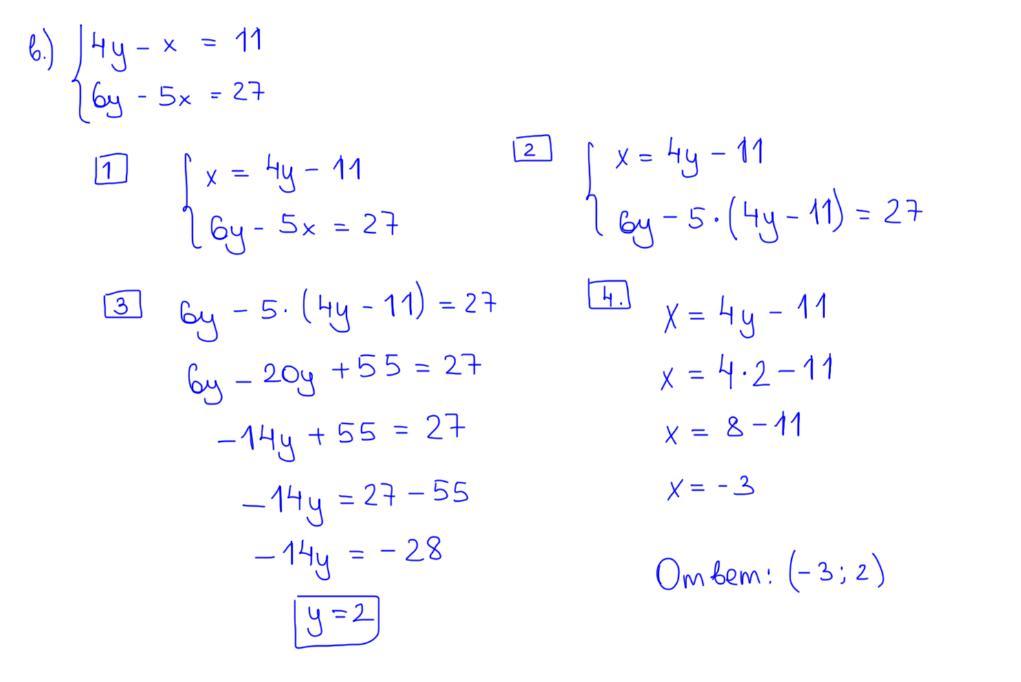 в.) { 4y - x = 11
6y - 5x = 27
1 { x = 4y - 11
6y - 5x = 27
2 { x = 4y - 11
6y - 5·(4y - 11) = 27
3 6y - 5·(4y - 11) = 27
6y - 20y + 55 = 27
-14y + 55 = 27
-14y = 27 - 55
-14y = -28
y = 2
4. x = 4y - 11
x = 4·2 - 11
x = 8 - 11
x = -3
Ответ: (-3; 2)